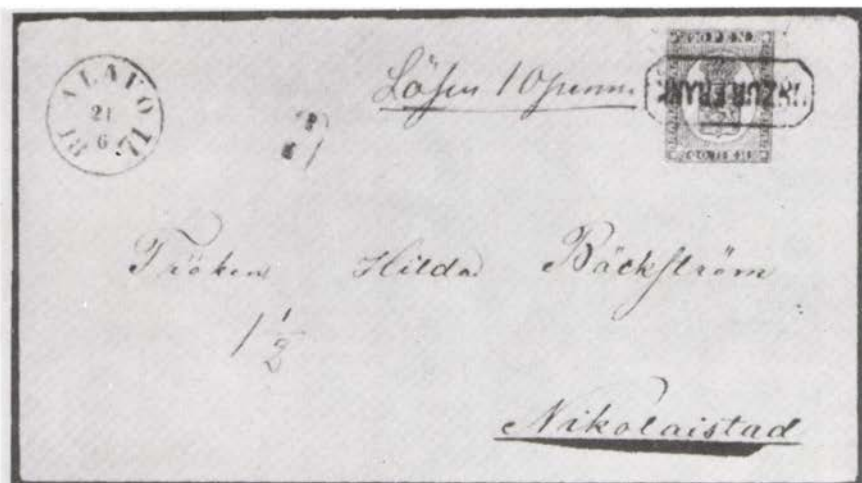 ALAVO
21
6
Lösen 10 penni.
20 PEN.
ZUR.FRANK
Fröken Hilda Bäckström
1 1/2
Nikolaistad